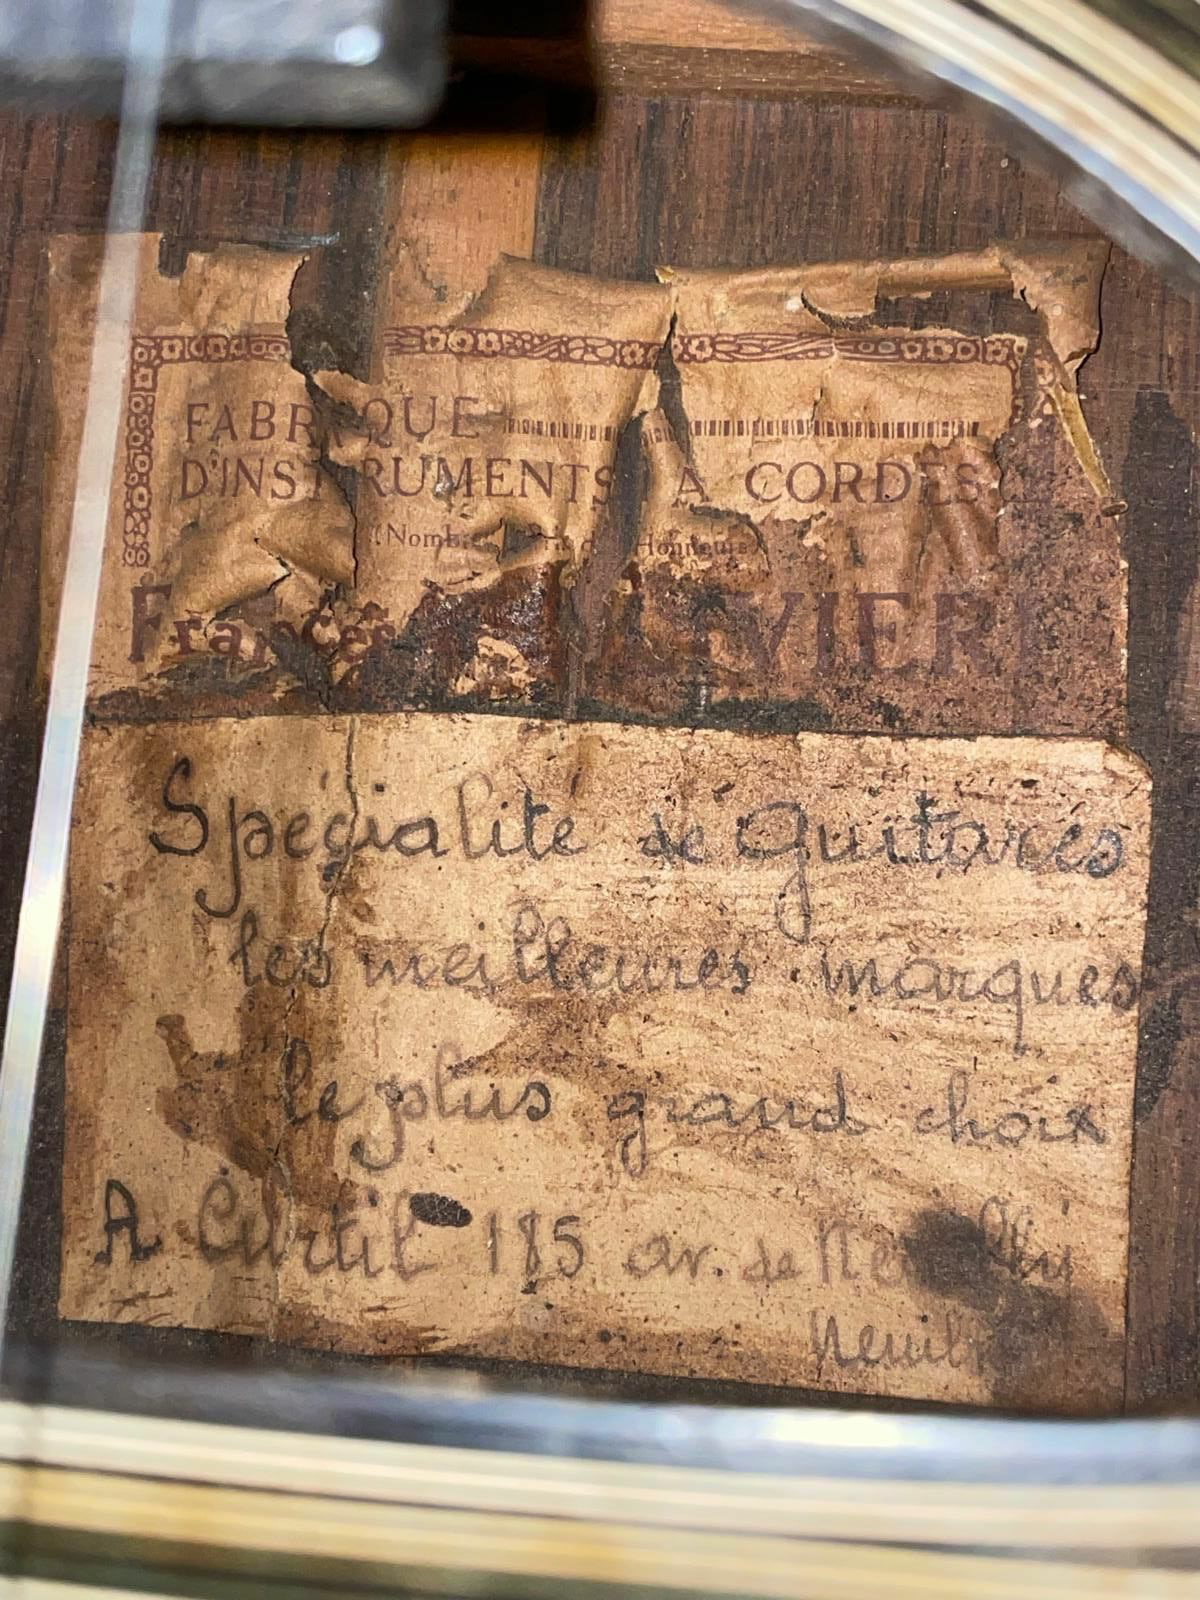 FABRIQUE
D'INSTRUMENTS A CORDES
Honneurs
VIERI
Spécialité de guitares
les meilleures marques
le plus grand choix
A Curtil 185 av. de Neuilly
Neuilly